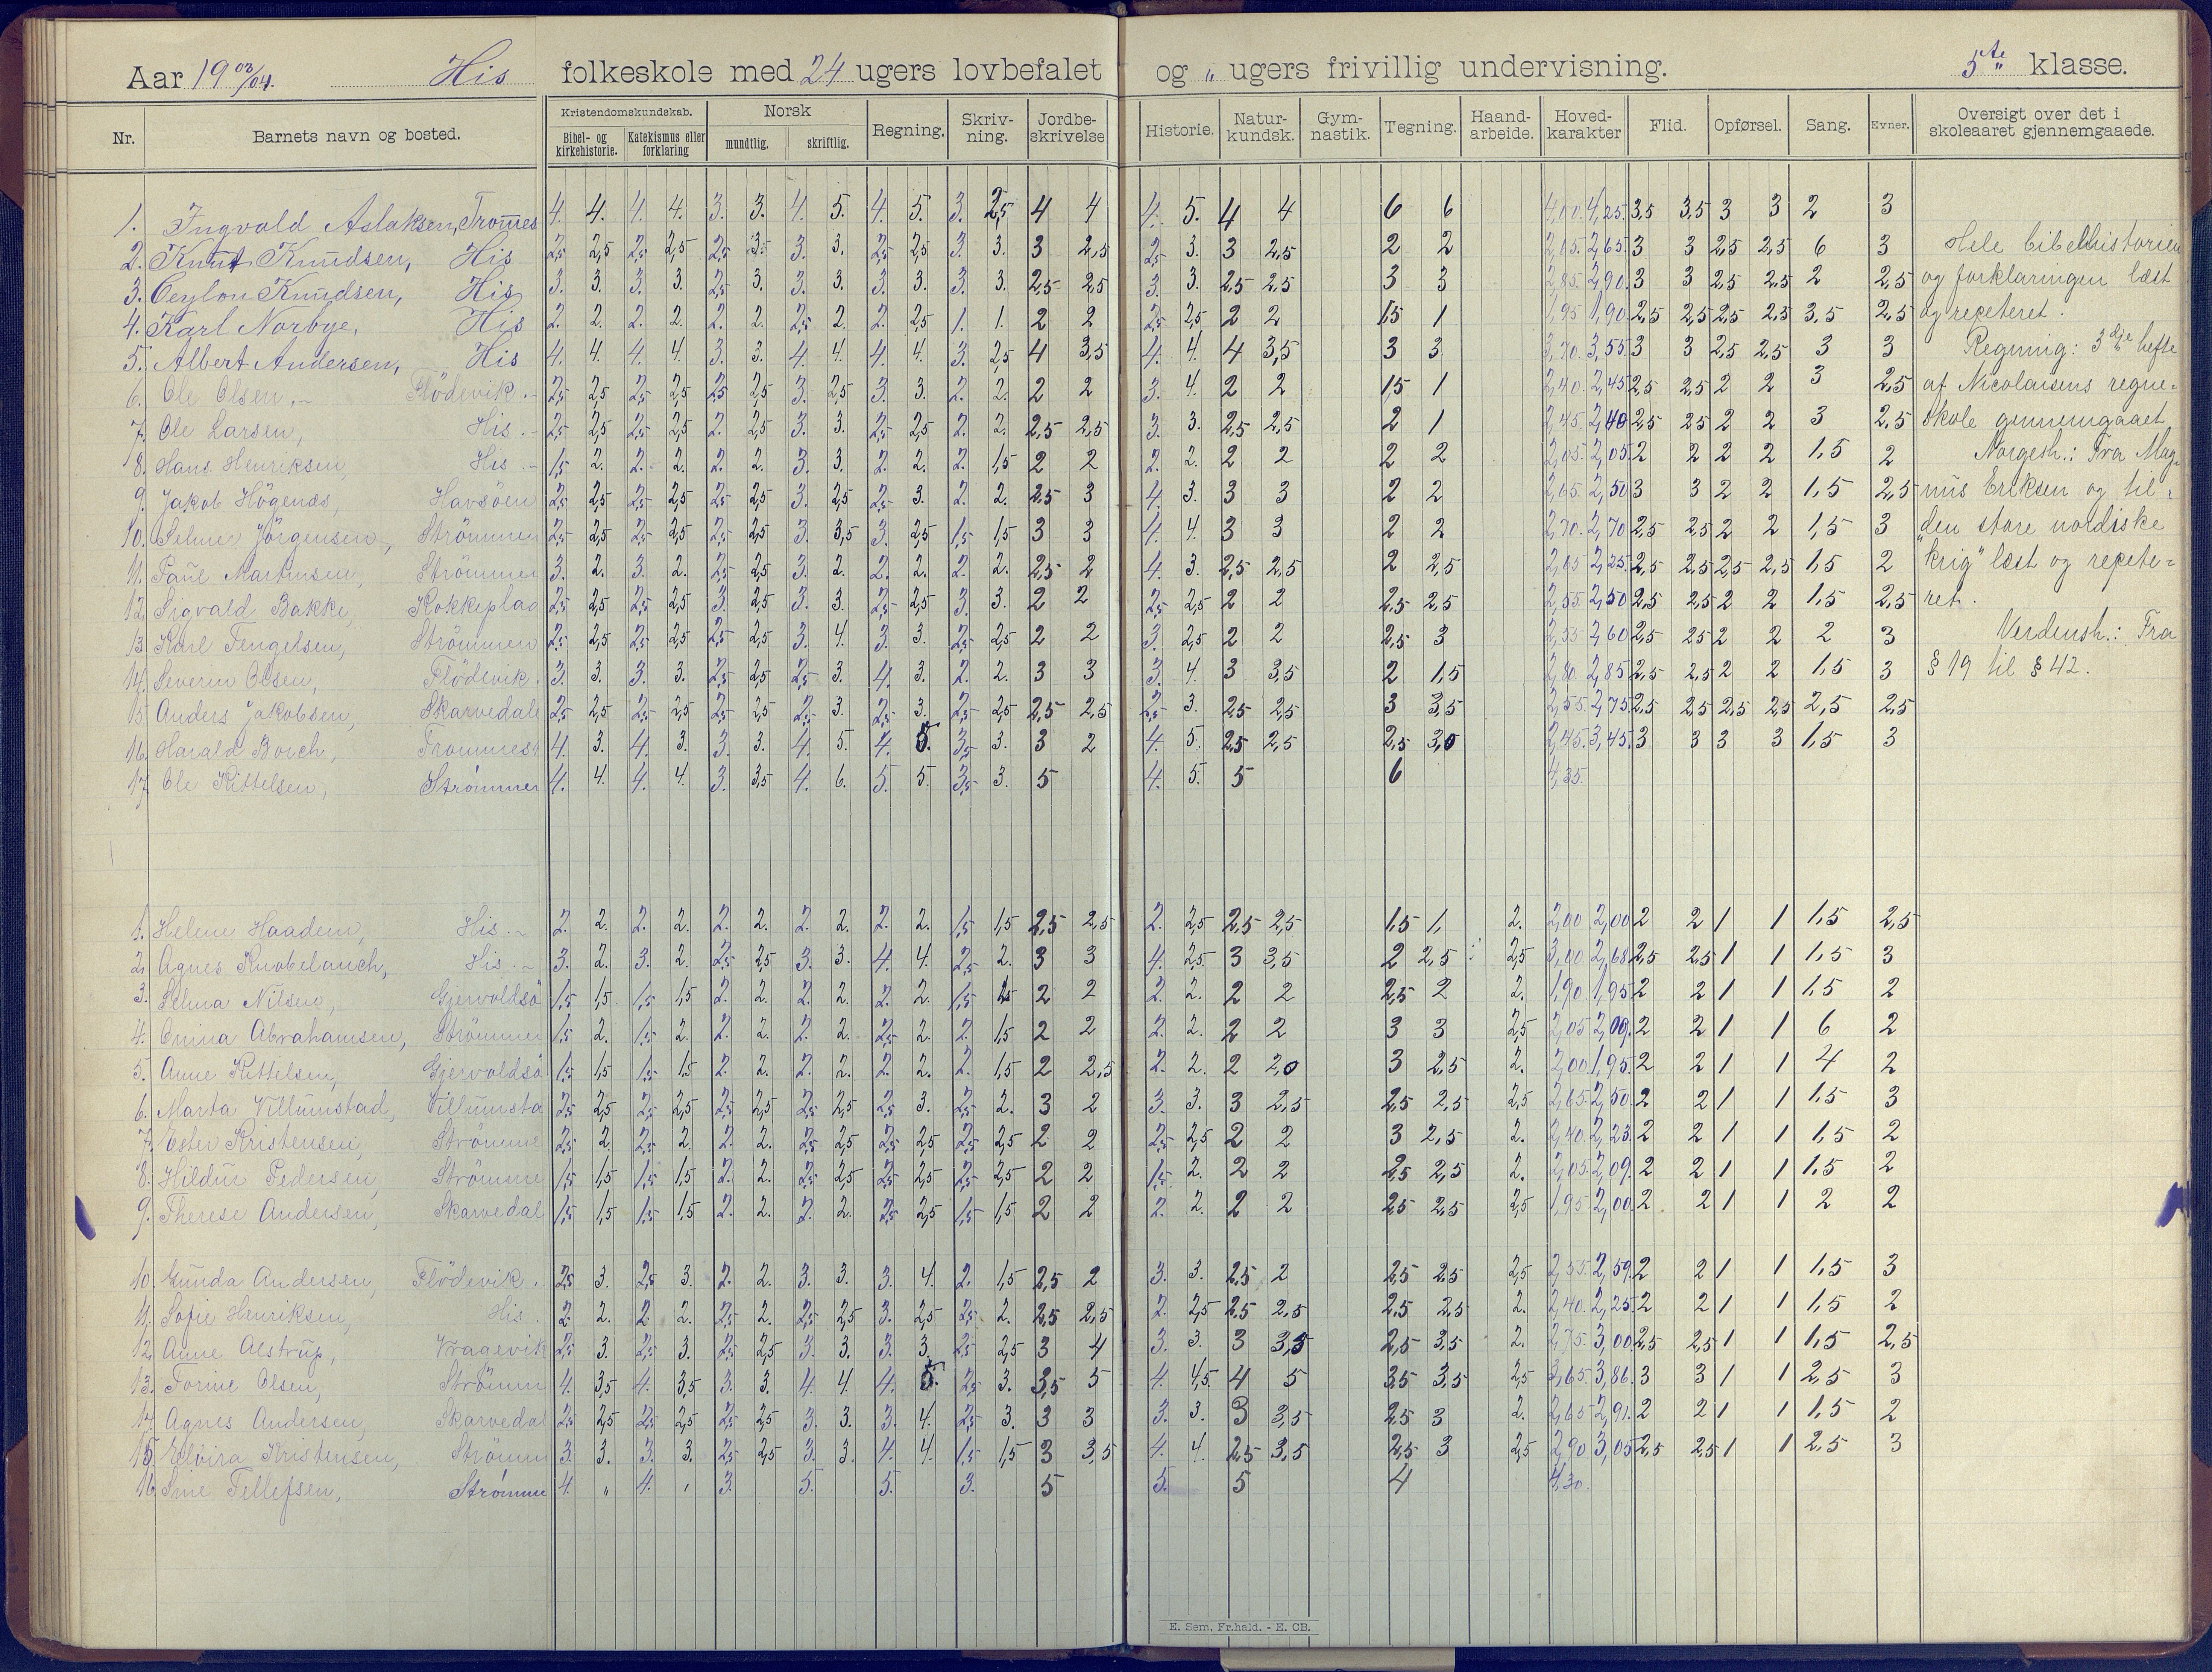 Aar 19 03/04. His folkeskole med 24 ugers lovbefalet og „ ugers frivillig undervisning. 5te klasse.
Nr. Barnets navn og bosted. Kristendomskundskab. Bibel- og kirkehistorie. Katekismus eller forklaring Norsk mundtlig. skriftlig. Regning. Skriv-ning. Jordbe-skrivelse Historie. Natur-kundsk. Gym-nastik. Tegning. Haand-arbeide. Hoved-karakter Flid. Opførsel. Sang. Evner. Oversigt over det i skoleaaret gjennemgaaede.
1. Ingvald Aslaksen, Tromes 4. 4. 4. 4. 3. 3. 4. 5. 4. 5. 3. 2,5 4 4 4. 5. 4 4 6 6 4,00. 4,25. 3,5 3,5 3 3 2 3
2. Knut Knudsen, His 2,5 2,5 2,5 2,5 2,5 3. 3. 3. 2,5 2,5 3. 3. 3 2,5 2,5 3. 3 2,5 2 2 2,65. 2,65. 3 3 2,5 2,5 6 3 Hele bibelhistorien
3. Ceylon Knudsen, His 3. 3. 3. 3. 2,5 3. 3. 3. 3. 3. 3. 3. 2,5 2,5 3. 3. 2,5 2,5 3 3 2,85. 2,90. 3 3 2,5 2,5 2 2,5 og forklaringen læst
4. Karl Norbye, His 2. 2. 2. 2. 2. 2. 2,5 2. 2. 2,5 1. 1. 2 2 2,5 2,5 2 2 1,5 1 1,95 1,90. 2,5 2,5 2,5 2,5 3,5 2,5 og repeteret.
5. Albert Andersen, His 4. 4. 4. 4. 3. 3. 4. 4. 4. 4. 3. 2,5 4 3,5 4. 4. 4 3,5 3 3 3,70. 3,55. 3 3 2,5 2,5 3 3 Regning: 3dje hefte
6. Ole Olsen, Flödevik. 2,5 2,5 2,5 2,5 2,5 2,5 3. 2,5 3. 3. 2. 2. 2 2 3. 4. 2 2 1,5 1 2,40. 2,45. 2,5 2,5 2 2 3 2,5 af Nicolaisens regne-
7. Ole Larsen, His. 2,5 2,5 2,5 2,5 2. 2,5 3. 3. 2,5 2,5 2. 2. 2,5 2,5 3. 3. 2,5 2,5 2 1 2,45. 2,40 2,5 2,5 2 2 3 2,5 skole gennemgaaet
8. Hans Henriksen, His. 1,5 2. 2. 2. 2. 2. 3. 3. 2. 2. 2. 1,5 2 2 2. 2. 2 2 2 2 2,05. 2,05. 2 2 2 2 1,5 2 Norgesh.: Fra Mag-
9. Jakob Högenæs, Havsöen 2,5 2,5 2,5 2,5 2,5 2,5 3. 2,5 2,5 3. 2. 2. 2,5 3 4. 3. 3 3 2 2 2,65. 2,50 3 3 2 2 1,5 2,5 nus Eriksen og til
10. Selmer Jörgensen, Strömmen 2,5 2,5 2,5 2,5 2,5 2,5 3. 3,5 3. 2,5 1,5 1,5 3 3 4. 4. 3 3 2 2 2,70. 2,70 2,5 2,5 2 2 1,5 3 „den store nordiske
11. Paul Martinsen, Strömmen 3. 2. 3. 2. 2,5 2,5 3. 2. 2. 2. 2. 2. 2,5 2 4. 3. 2,5 2,5 2 2,5 2,65 2,25. 2,5 2,5 2,5 2,5 1,5 2 krig" læst og repete-
12. Sigvald Bakke, Kokkeplad 2,5 2,5 2,5 2,5 3. 2,5 3. 3. 2,5 2,5 3. 3. 2 2 2,5 2,5 2 2 2,5 2,5 2,55. 2,50 2,5 2,5 2 2 1,5 2,5 ret.
13 Karl Tengelsen, Strömmen 2,5 2,5 2,5 2,5 2,5 2,5 3. 4. 3. 3. 2,5 2,5 2 2 3. 2,5 2 2 2,5 3 2,55 2,60 2,5 2,5 2 2 2 3 Verdensh.: Fra
14. Severin Olsen, Flödevik. 3. 3. 3. 3. 2,5 2,5 2,5 3. 4. 3. 2. 2. 3 3 3. 4. 3 3,5 2 1,5 2,80. 2,85. 2,5 2,5 2 2 1,5 3 § 19 til § 42.
15 Anders Jakobsen, Skarvedal 2,5 2,5 2,5 2,5 2,5 2,5 2,5 3. 2,5 3. 2,5 2,5 2,5 2,5 2,5 3. 2,5 2,5 3 3,5 2,55. 2,75 2,5 2,5 2,5 2,5 2,5 2,5
16. Harald Borch, Trommest 4. 3. 4. 3. 3. 3. 4. 5. 4. 5. 3,5 3. 3 2 4. 5. 2,5 2,5 2,5 3,0 2,45. 3,45. 3 3 3 3 1,5 3
17 Ole Kittelsen, Strömmen 4. 4. 4. 4. 3. 3,5 4. 6. 5. 5. 3,5 3. 5 4. 5. 5 6 4,35.
1. Helene Haadem, His. 2. 2. 2. 2. 2. 2. 2. 2. 2. 2. 1,5 1,5 2,5 2,5 2. 2,5 2,5 2,5 1,5 1, 2. 2,00 2,00 2 2 1 1 1,5 2,5
2. Agnes Knobelauch, His. 3. 2. 3. 2. 2,5 2,5 3. 3. 4. 4. 2,5 2. 3 3 4. 2,5 3 3,5 2 2,5 2,5 3,00 2,68 2,5 2,5 1 1 1,5 3
3. Selma Nilsen, Gjervoldsö 1,5 1,5 1,5 1,5 2. 2. 2. 2. 2. 2. 1,5 1,5 2 2 2. 2. 2 2 2,5 2 2. 1,90. 1,95 2 2 1 1 1,5 2
4. Emma Abrahamsen, Strömmen 1,5 2. 1,5 2. 2. 2. 2. 2. 2,5 2. 2. 1,5 2 2 2. 2. 2 2 3 3 2,5 2,05 2,09. 2 2 1 1 6 2
5. Anne Kittelsen, Gjervoldsö 1,5 1,5 1,5 1,5 2. 2. 2. 2. 2. 2. 2. 1,5 2 2,5 2. 2. 2 2,0 3 2,5 2. 2,00 1,95. 2 2 1 1 4 2
6. Marta Villumstad, Villumsta 2,5 2,5 2,5 2,5 2,5 2,5 2,5 2,5 2,5 3. 2,5 2. 3 2 3. 3. 3 2,5 2,5 2,5 2,5 2,65. 2,50. 2 2 1 1 1,5 3
7. Ester Kristensen, Strömme 2,5 2. 2,5 2. 2. 2. 2,5 2,5 2,5 2,5 2,5 2,5 2 2 2,5 2,5 2 2 3 2,5 2. 2,40. 2,23. 2 2 1 1 1,5 2
8. Hildur Pedersen, Strömme 1,5 1,5 1,5 1,5 2. 2. 2,5 2,5 2,5 2,5 2,5 2,5 2 2 1,5 2. 2 2 2,5 2,5 2. 2,05. 2,09. 2 2 1 1 1,5 2
9. Therese Andersen, Skarvedal 1,5 1,5 1,5 1,5 2. 2. 2. 2. 2,5 2,5 1,5 1,5 2 2 2. 2. 2 2 2,5 2,5 2,5 1,95. 2,00. 2 2 1 1 2 2
10. Gunda Andersen, Flödevik. 2,5 3. 2,5 3. 2. 2. 3. 3. 3. 4. 2. 1,5 2,5 2 3. 3. 2,5 2 2,5 2,5 2,5 2,55. 2,59. 2 2 1 1 1,5 3
11. Sofie Henriksen, His. 2. 2. 2. 2. 2,5 2. 2,5 2,5 3. 2,5 2,5 2. 2,5 2,5 2. 2,5 2,5 2,5 2,5 2,5 2. 2,40. 2,25 2 2 1 1 1,5 2
12. Anne Alstrup, Vragevik 2,5 3. 2,5 3. 2,5 2,5 3. 3. 3. 3. 2,5 2,5 3 4 3. 3. 3 3,5 2,5 3,5 2. 2,75. 3,00 2,5 2,5 1 1 1,5 2,5
13. Torine Olsen, Strömm 4. 3,5 4. 3,5 3. 3. 4. 4. 4. 5. 2,5 3. 3,5 5 4. 4,5. 4 5 3,5 3,5 2,5 3,65. 3,86. 3 3 1 1 2,5 3
14. Agnes Andersen, Skarvedal 2,5 2,5 2,5 2,5 2,5 2,5 3. 3. 3. 4. 2,5 3. 3 3 3. 3. 3 3,5 2,5 3 2. 2,65 2,91. 2 2 1 1 1,5 2
15. Elvira Kristensen, Strömm 3. 3. 3. 3. 2,5 2,5 3. 3. 4. 4. 1,5 1,5 3 3,5 4. 4. 2,5 3,5 2,5 3 2,5 2,90 3,05 2,5 2,5 1 1 2,5 3
16. Sine Tellefsen, Strömme 4. „ 4. , 3. 5. 5. 3. 5 5. 5 4 4,30.
E. Sem, Fr.hald. - E. CB.